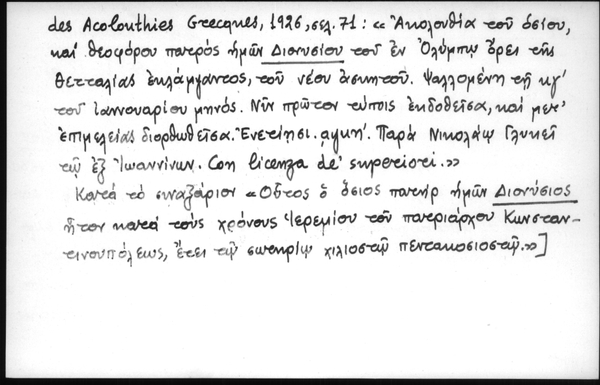 des Acolouthies Grecques, 1926, σελ. 71: « Ἀκολουθία τοῦ ὁσίου,
καί θεοφόρου πατρός ἡμῶν Διονυσίου τοῦ ἐν Ὀλύμπῳ ὄρει τῆς
Θετταλίας ἐκλάμψαντος, τοῦ νέου ἀσκητοῦ. Ψαλλομένη τῇ κγ'
τοῦ ἰαννουαρίου μηνός. Νῦν πρῶτον τύποις ἐκδοθεῖσα, καί μετ'
ἐπιμελείας διορθωθεῖσα. Ἐνετίῃσι. αψκη'. Παρά Νικολάῳ Γλυκεῖ
τῷ ἐξ Ἰωαννίνων. Con licenza de' superiori.»
Κατά τό συναξάριον «Οὗτος ὁ ὅσιος πατήρ ἡμῶν Διονύσιος
ἦτον κατά τούς χρόνους Ἱερεμίου τοῦ πατριάρχου Κωνσταν-
τινουπόλεως, ἔτει τῷ σωτηρίῳ χιλιοστῷ πεντακοσιοστῷ.»]